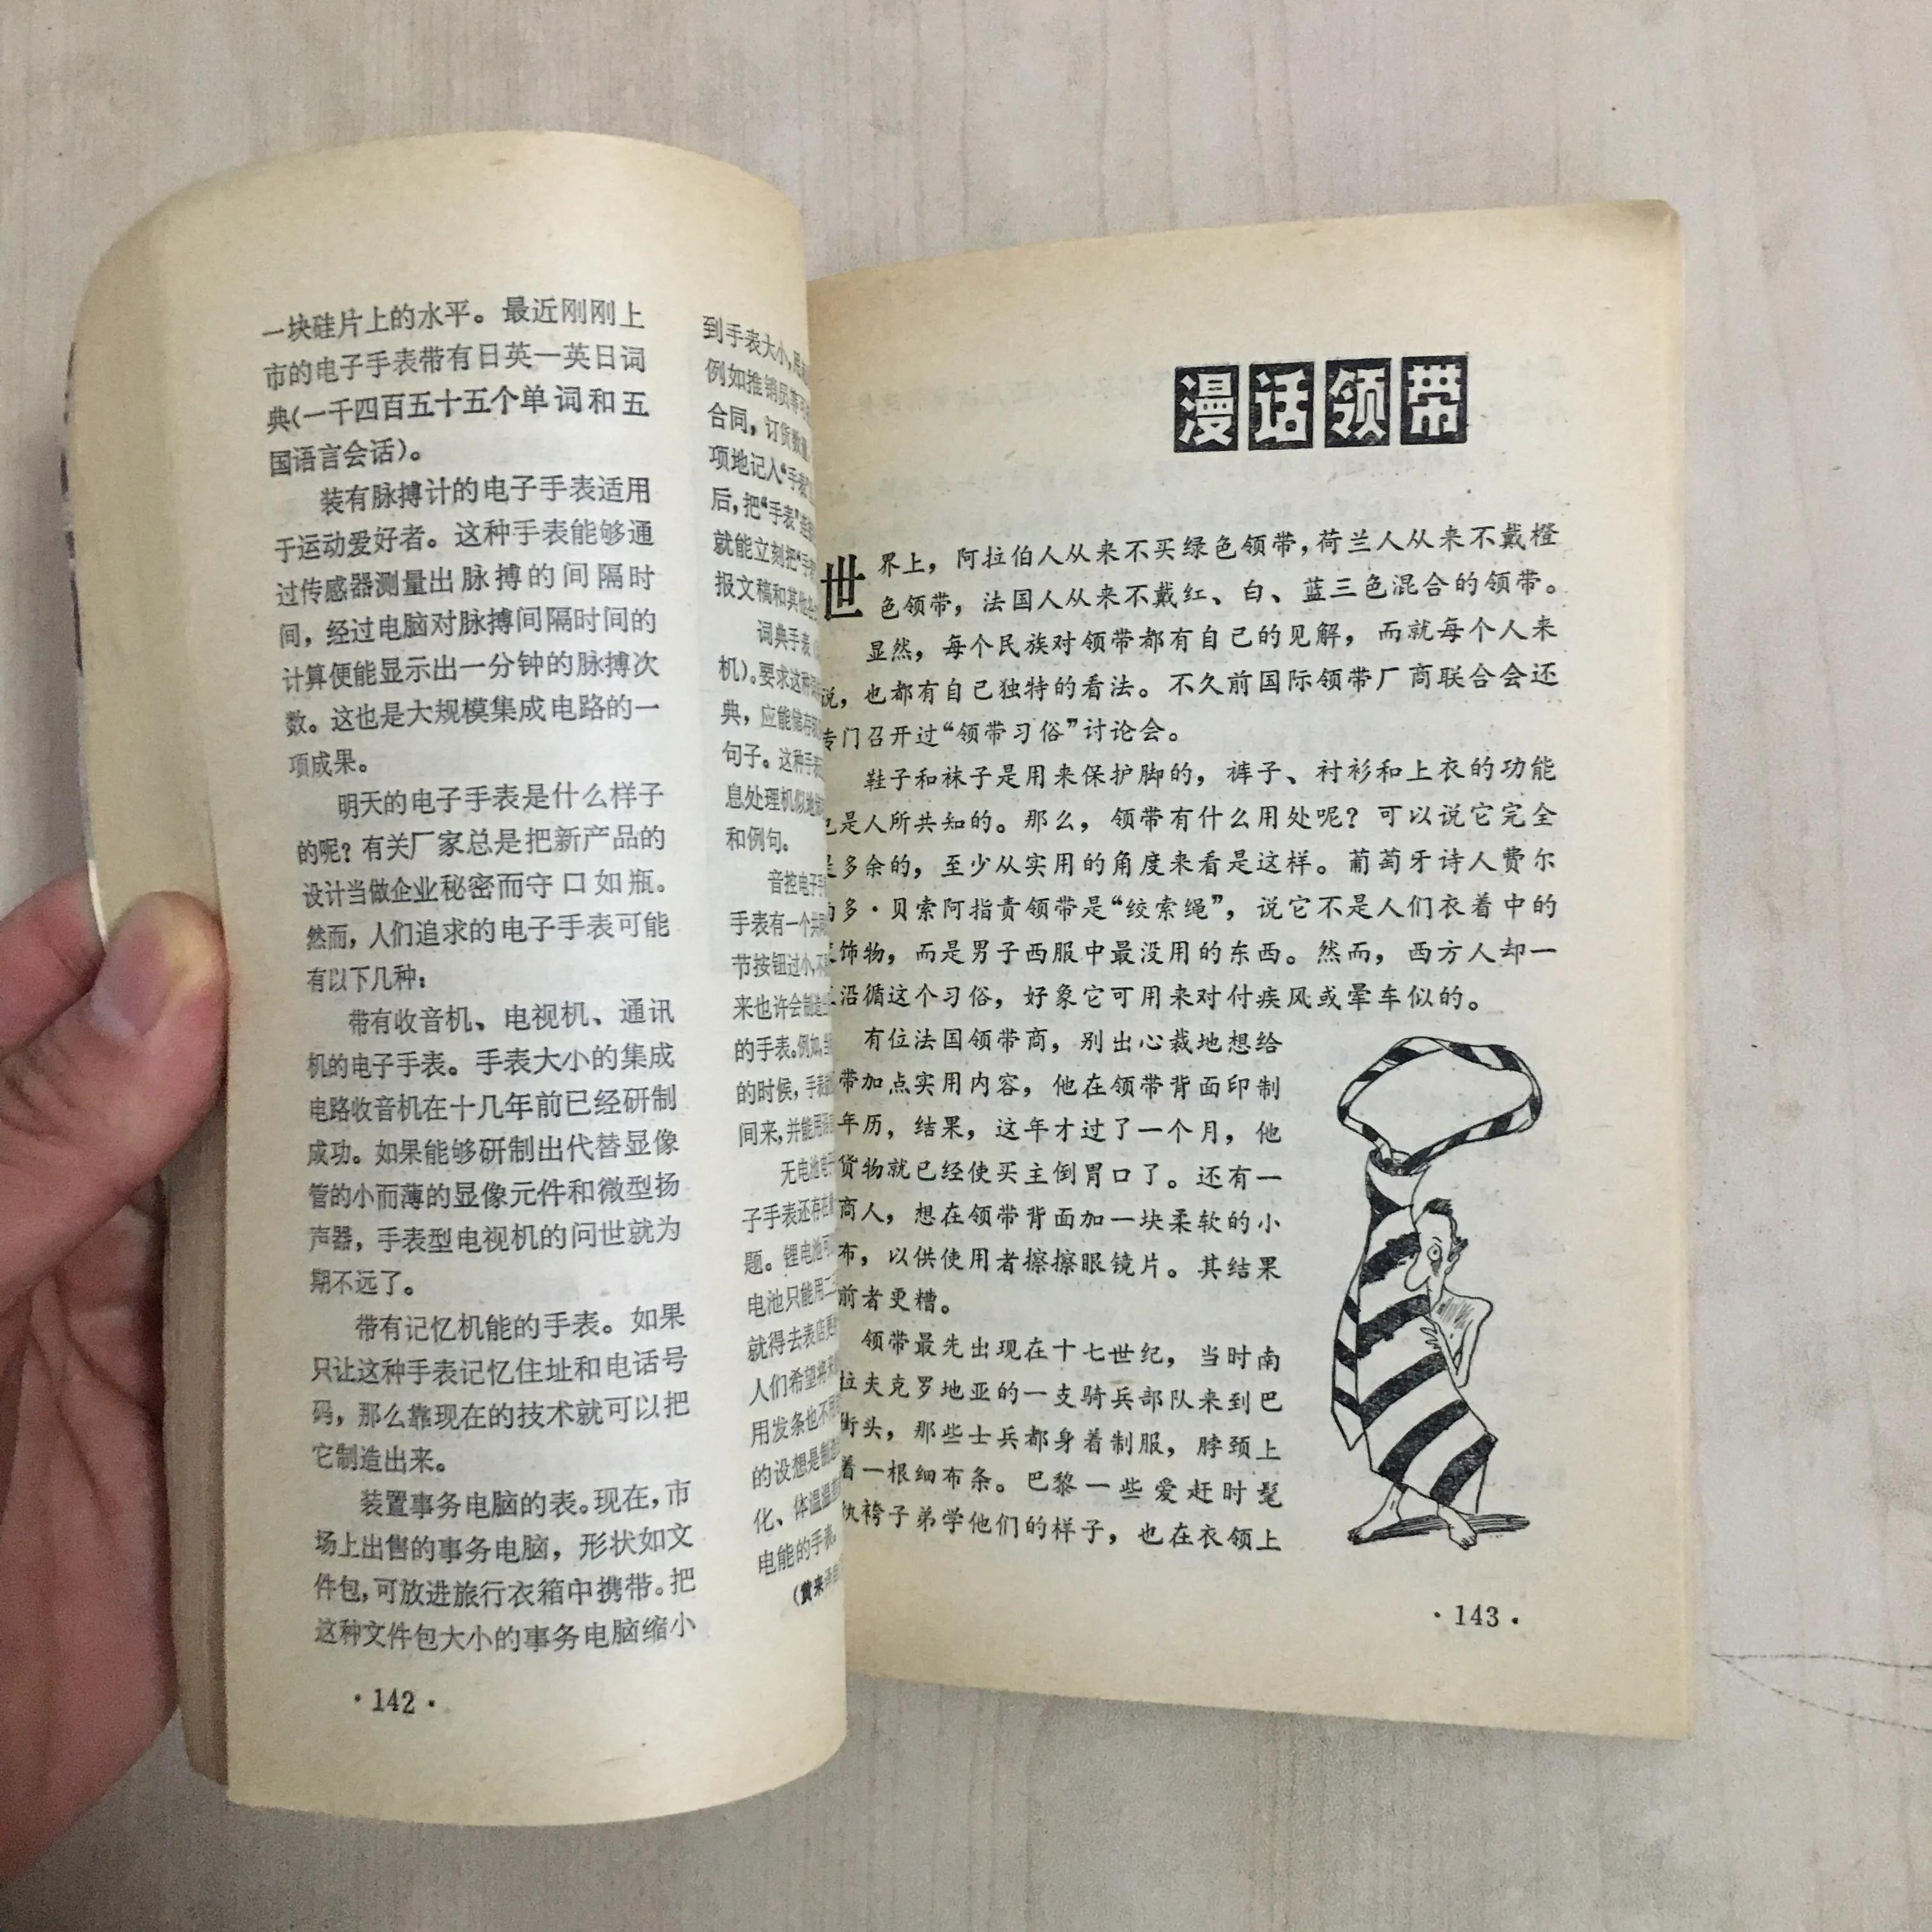 一块硅片上的水平。最近刚刚上
市的电子手表带有日英一英日词
典(一千四百五十五个单词和五
国语言会话)。
装有脉搏计的电子手表适用
于运动爱好者。这种手表能够通
过传感器测量出脉搏的间隔时
间，经过电脑对脉搏间隔时间的
计算便能显示出一分钟的脉搏次
数。这也是大规模集成电路的一
项成果。
明天的电子手表是什么样子
的呢？有关厂家总是把新产品的
设计当做企业秘密而守口如瓶。
然而，人们追求的电子手表可能
有以下几种：
带有收音机、电视机、通讯
机的电子手表。手表大小的集成
电路收音机在十几年前已经研制
成功。如果能够研制出代替显像
管的小而薄的显像元件和微型扬
声器，手表型电视机的问世就为
期不远了。
带有记忆机能的手表。如果
只让这种手表记忆住址和电话号
码，那么靠现在的技术就可以把
它制造出来。
装置事务电脑的表。现在，市
场上出售的事务电脑，形状如文
件包，可放进旅行衣箱中携带。把
这种文件包大小的事务电脑缩小
·142·
到手表大小，
例如推销员等
合同，订货数量
项地记入“手表”
后，把“手表”
就能立刻把“手
报文稿和其他
词典手表
机)。要求这种
典，应能储存
句子。这种手表
息处理机似地
和例句。
音控电子手
手表有一个共同
节按钮过小，不
来也许会制造
的手表。例如，当
的时候，手表
间来，并能用
无电池电子
子手表还存在
题。锂电池可
电池只能用二
就得去表店更
人们希望将来
用发条也不用
的设想是制造
化、体温温差
电能的手表。
(黄来译自
漫话领带
世界上，阿拉伯人从来不买绿色领带，荷兰人从来不戴橙
色领带，法国人从来不戴红、白、蓝三色混合的领带。
显然，每个民族对领带都有自己的见解，而就每个人来
说，也都有自己独特的看法。不久前国际领带厂商联合会还
专门召开过“领带习俗”讨论会。
鞋子和袜子是用来保护脚的，裤子、衬衫和上衣的功能
已是人所共知的。那么，领带有什么用处呢？可以说它完全
是多余的，至少从实用的角度来看是这样。葡萄牙诗人费尔
多·贝索阿指责领带是“绞索绳”，说它不是人们衣着中的
饰物，而是男子西服中最没用的东西。然而，西方人却一
沿循这个习俗，好象它可用来对付疾风或晕车似的。
有位法国领带商，别出心裁地想给
带加点实用内容，他在领带背面印制
年历，结果，这年才过了一个月，他
货物就已经使买主倒胃口了。还有一
商人，想在领带背面加一块柔软的小
布，以供使用者擦擦眼镜片。其结果
前者更糟。
领带最先出现在十七世纪，当时南
拉夫克罗地亚的一支骑兵部队来到巴
街头，那些士兵都身着制服，脖颈上
着一根细布条。巴黎一些爱赶时髦
纨袴子弟学他们的样子，也在衣领上
·143·